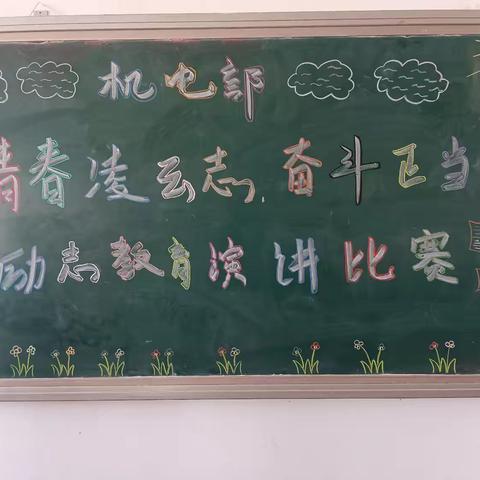 机电部
青春凌云志，奋斗正当
励志教育演讲比赛